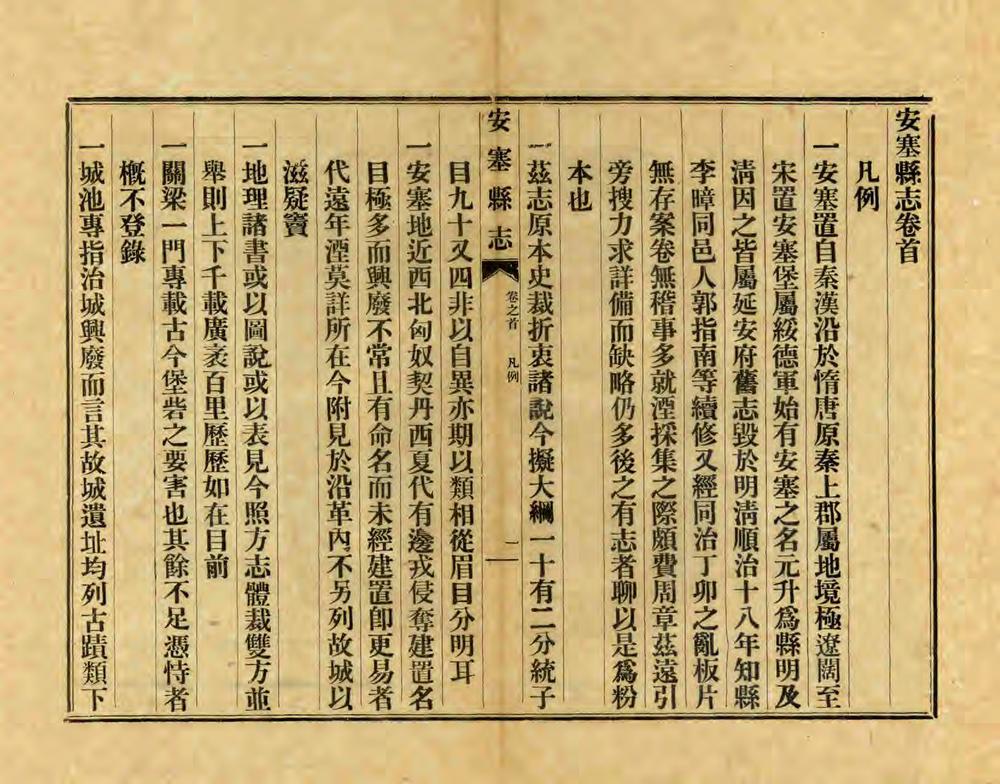 安塞縣志卷首
凡例
一安塞置自秦漢沿於惰唐原秦上郡屬地境極遼闊至
宋置安塞堡屬綏德軍始有安塞之名元升爲縣明及
淸因之皆屬延安府舊志毀於明淸順治十八年知縣
李暲同邑人郭指南等續修又經同治丁卯之亂板片
無存案卷無稽事多就湮採集之際頗費周章茲遠引
旁搜力求詳備而缺略仍多後之有志者聊以是爲粉
本也
一茲志原本史裁折衷諸說今擬大綱一十有二分統子
安塞縣志 卷之首 凡例 一
目九十又四非以自異亦期以類相從眉目分明耳
一安塞地近西北匈奴契丹西夏代有邊戎侵奪建置名
目極多而興廢不常且有命名而未經建置卽更易者
代遠年湮莫詳所在今附見於沿革內不另列故城以
滋疑竇
一地理諸書或以圖說或以表見今照方志體裁雙方並
舉則上下千載廣袤百里歷歷如在目前
一關梁一門專載古今堡砦之要害也其餘不足憑恃者
槪不登錄
一城池專指治城興廢而言其故城遺址均列古蹟類下